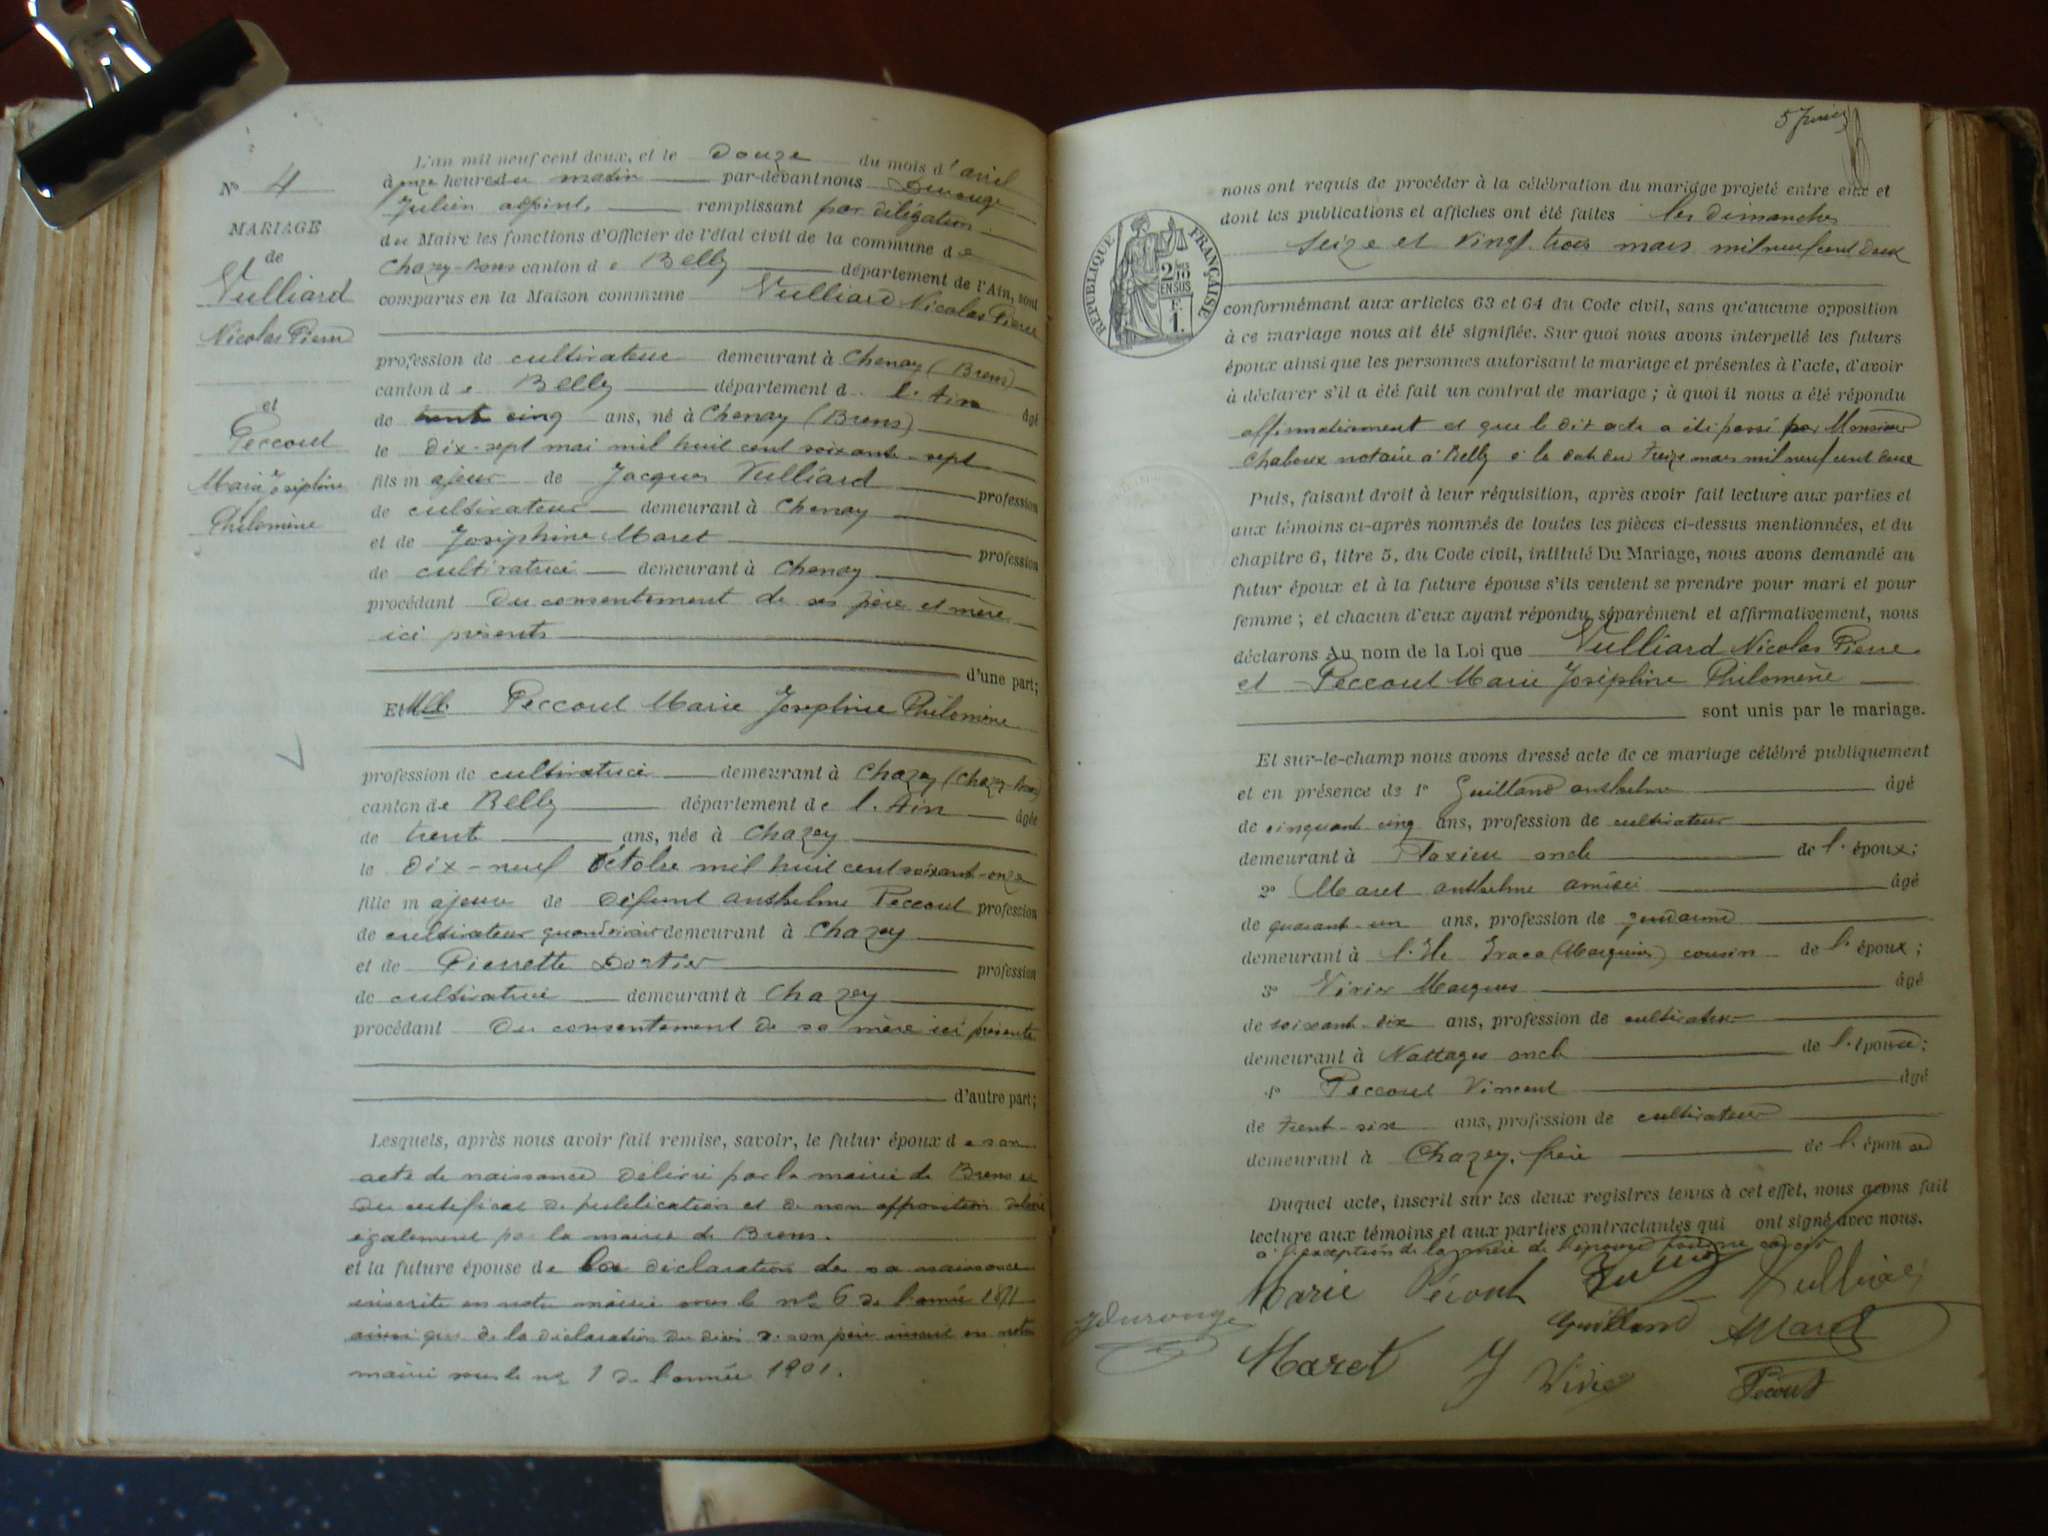 N° 4
MARIAGE
de
Vulliard
Nicolas Pierre
et
Peccoud
Marie Joséphine
Philomène
L'an mil neuf cent deux, et le Douze du mois d'avril
à onze heures du matin par-devant nous Durouge
Julien adjoint remplissant par délégation
du Maire les fonctions d'Officier de l'état civil de la commune de
Chazey-Bons canton de Belley département de l'Ain, sont
comparus en la Maison commune Vulliard Nicolas Pierre
profession de cultivateur demeurant à Chenay (Brens)
canton de Belley département d l'Ain âgé
de trente cinq ans, né à Chenay (Brens)
le dix-sept mai mil huit cent soixante-sept
fils majeur de Jacques Vulliard profession
de cultivateur demeurant à Chenay
et de Joséphine Maret profession
de cultivatrice demeurant à Chenay
procédant du consentement de ses père et mère
ici présents
d'une part;
Et Mlle Peccoud Marie Joséphine Philomène
profession de cultivatrice demeurant à Chazey (Chazey-Bons)
canton de Belley département de l'Ain âgée
de trente ans, née à Chazey
le dix-neuf Octobre mil huit cent soixante-onze
fille majeure de défunt Anthelme Peccoud profession
de cultivateur quand vivait demeurant à Chazey
et de Pierrette Dortier profession
de cultivatrice demeurant à Chazey
procédant du consentement de sa mère ici présente
d'autre part;
Lesquels, après nous avoir fait remise, savoir, le futur époux de son
acte de naissance délivré par la mairie de Brens et
du certificat de publication et de non opposition délivré
également par la mairie de Brens.
et la future épouse de la déclaration de sa naissance
inscrite en notre mairie sous le n° 6 de l'année 1871
ainsi que de la déclaration du décès de son père inscrit en notre
mairie sous le n° 1 de l'année 1901.
nous ont requis de procéder à la célébration du mariage projeté entre eux et
dont les publications et affiches ont été faites les dimanches
seize et vingt trois mars mil neuf cent deux
RÉPUBLIQUE FRANÇAISE
2/10
EN SUS
F.
1.
conformément aux articles 63 et 64 du Code civil, sans qu'aucune opposition
à ce mariage nous ait été signifiée. Sur quoi nous avons interpellé les futurs
époux ainsi que les personnes autorisant le mariage et présentes à l'acte, d'avoir
à déclarer s'il a été fait un contrat de mariage; à quoi il nous a été répondu
affirmativement et que le dit acte a été passé par Monsieur
Chaboux notaire à Belley à la date du treize mars mil neuf cent deux
Puis, faisant droit à leur réquisition, après avoir fait lecture aux parties et
aux témoins ci-après nommés de toutes les pièces ci-dessus mentionnées, et du
chapitre 6, titre 5, du Code civil, intitulé Du Mariage, nous avons demandé au
futur époux et à la future épouse s'ils veulent se prendre pour mari et pour
femme; et chacun d'eux ayant répondu séparément et affirmativement, nous
déclarons Au nom de la Loi que Vulliard Nicolas Pierre
et Peccoud Marie Joséphine Philomène
sont unis par le mariage.
Et sur-le-champ nous avons dressé acte de ce mariage célébré publiquement
et en présence de 1° Guilland anthelme âgé
de cinquante cinq ans, profession de cultivateur
demeurant à oncle de l'époux;
2° Maret anthelme âgé
de quarante-un ans, profession de gendarme
demeurant à cousin de l'époux;
3° Vivier Marquis âgé
de soixante-dix ans, profession de cultivateur
demeurant à Nattages oncle de l'épouse;
4° Peccoud Vincent âgé
de trente-six ans, profession de cultivateur
demeurant à Chazey, frère de l'épouse
Duquel acte, inscrit sur les deux registres tenus à cet effet, nous avons fait
lecture aux témoins et aux parties contractantes qui ont signé avec nous.
à l'exception de la mère de l'épouse
Marie Pécout Vulliard
JDurouge Guilland AMaret
Maret J Vivier Pécout